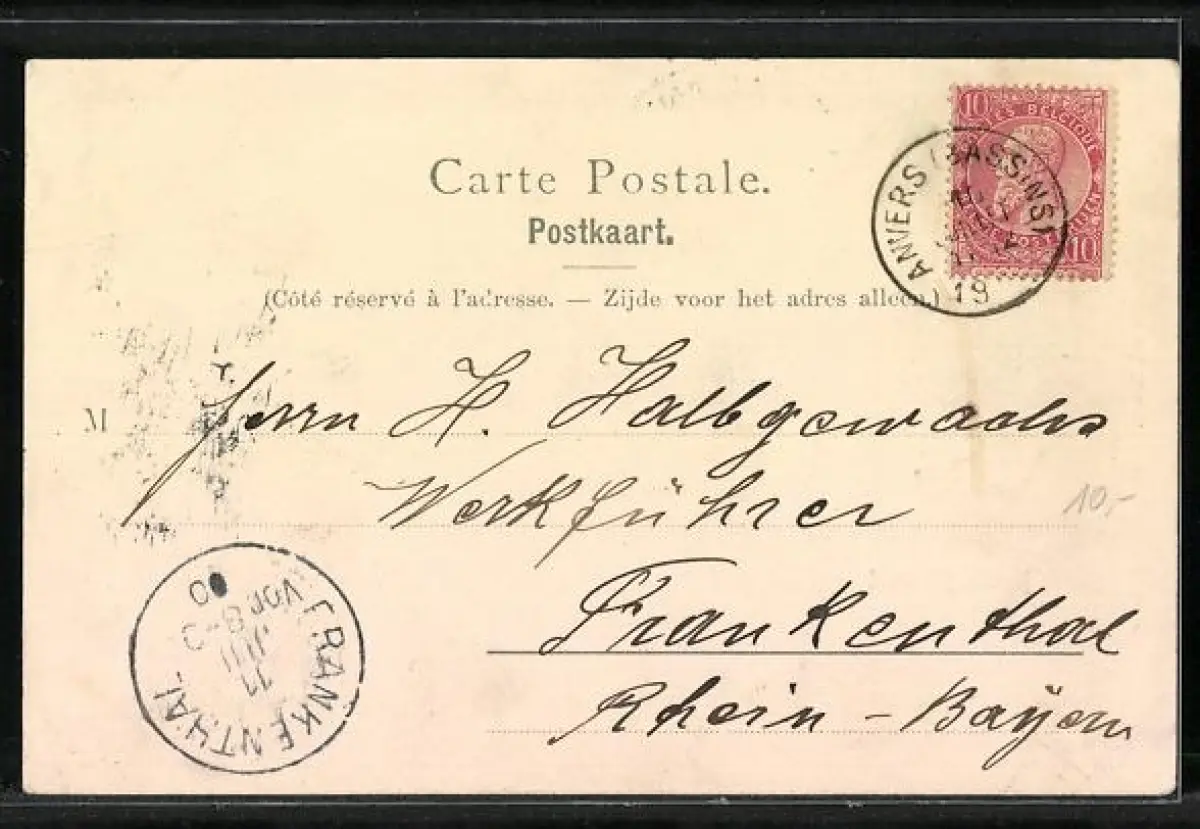 Carte Postale.
Postkaart.
(Côté réservé à l'adresse. — Zijde voor het adres alleen.)
10
BELGIQUE
10
ANVERS (BASSINS)
19
M Herrn H. Halbgewachs
Werkführer
10,-
Frankenthal
Rhein - Bayern
FRANKENTHAL
11